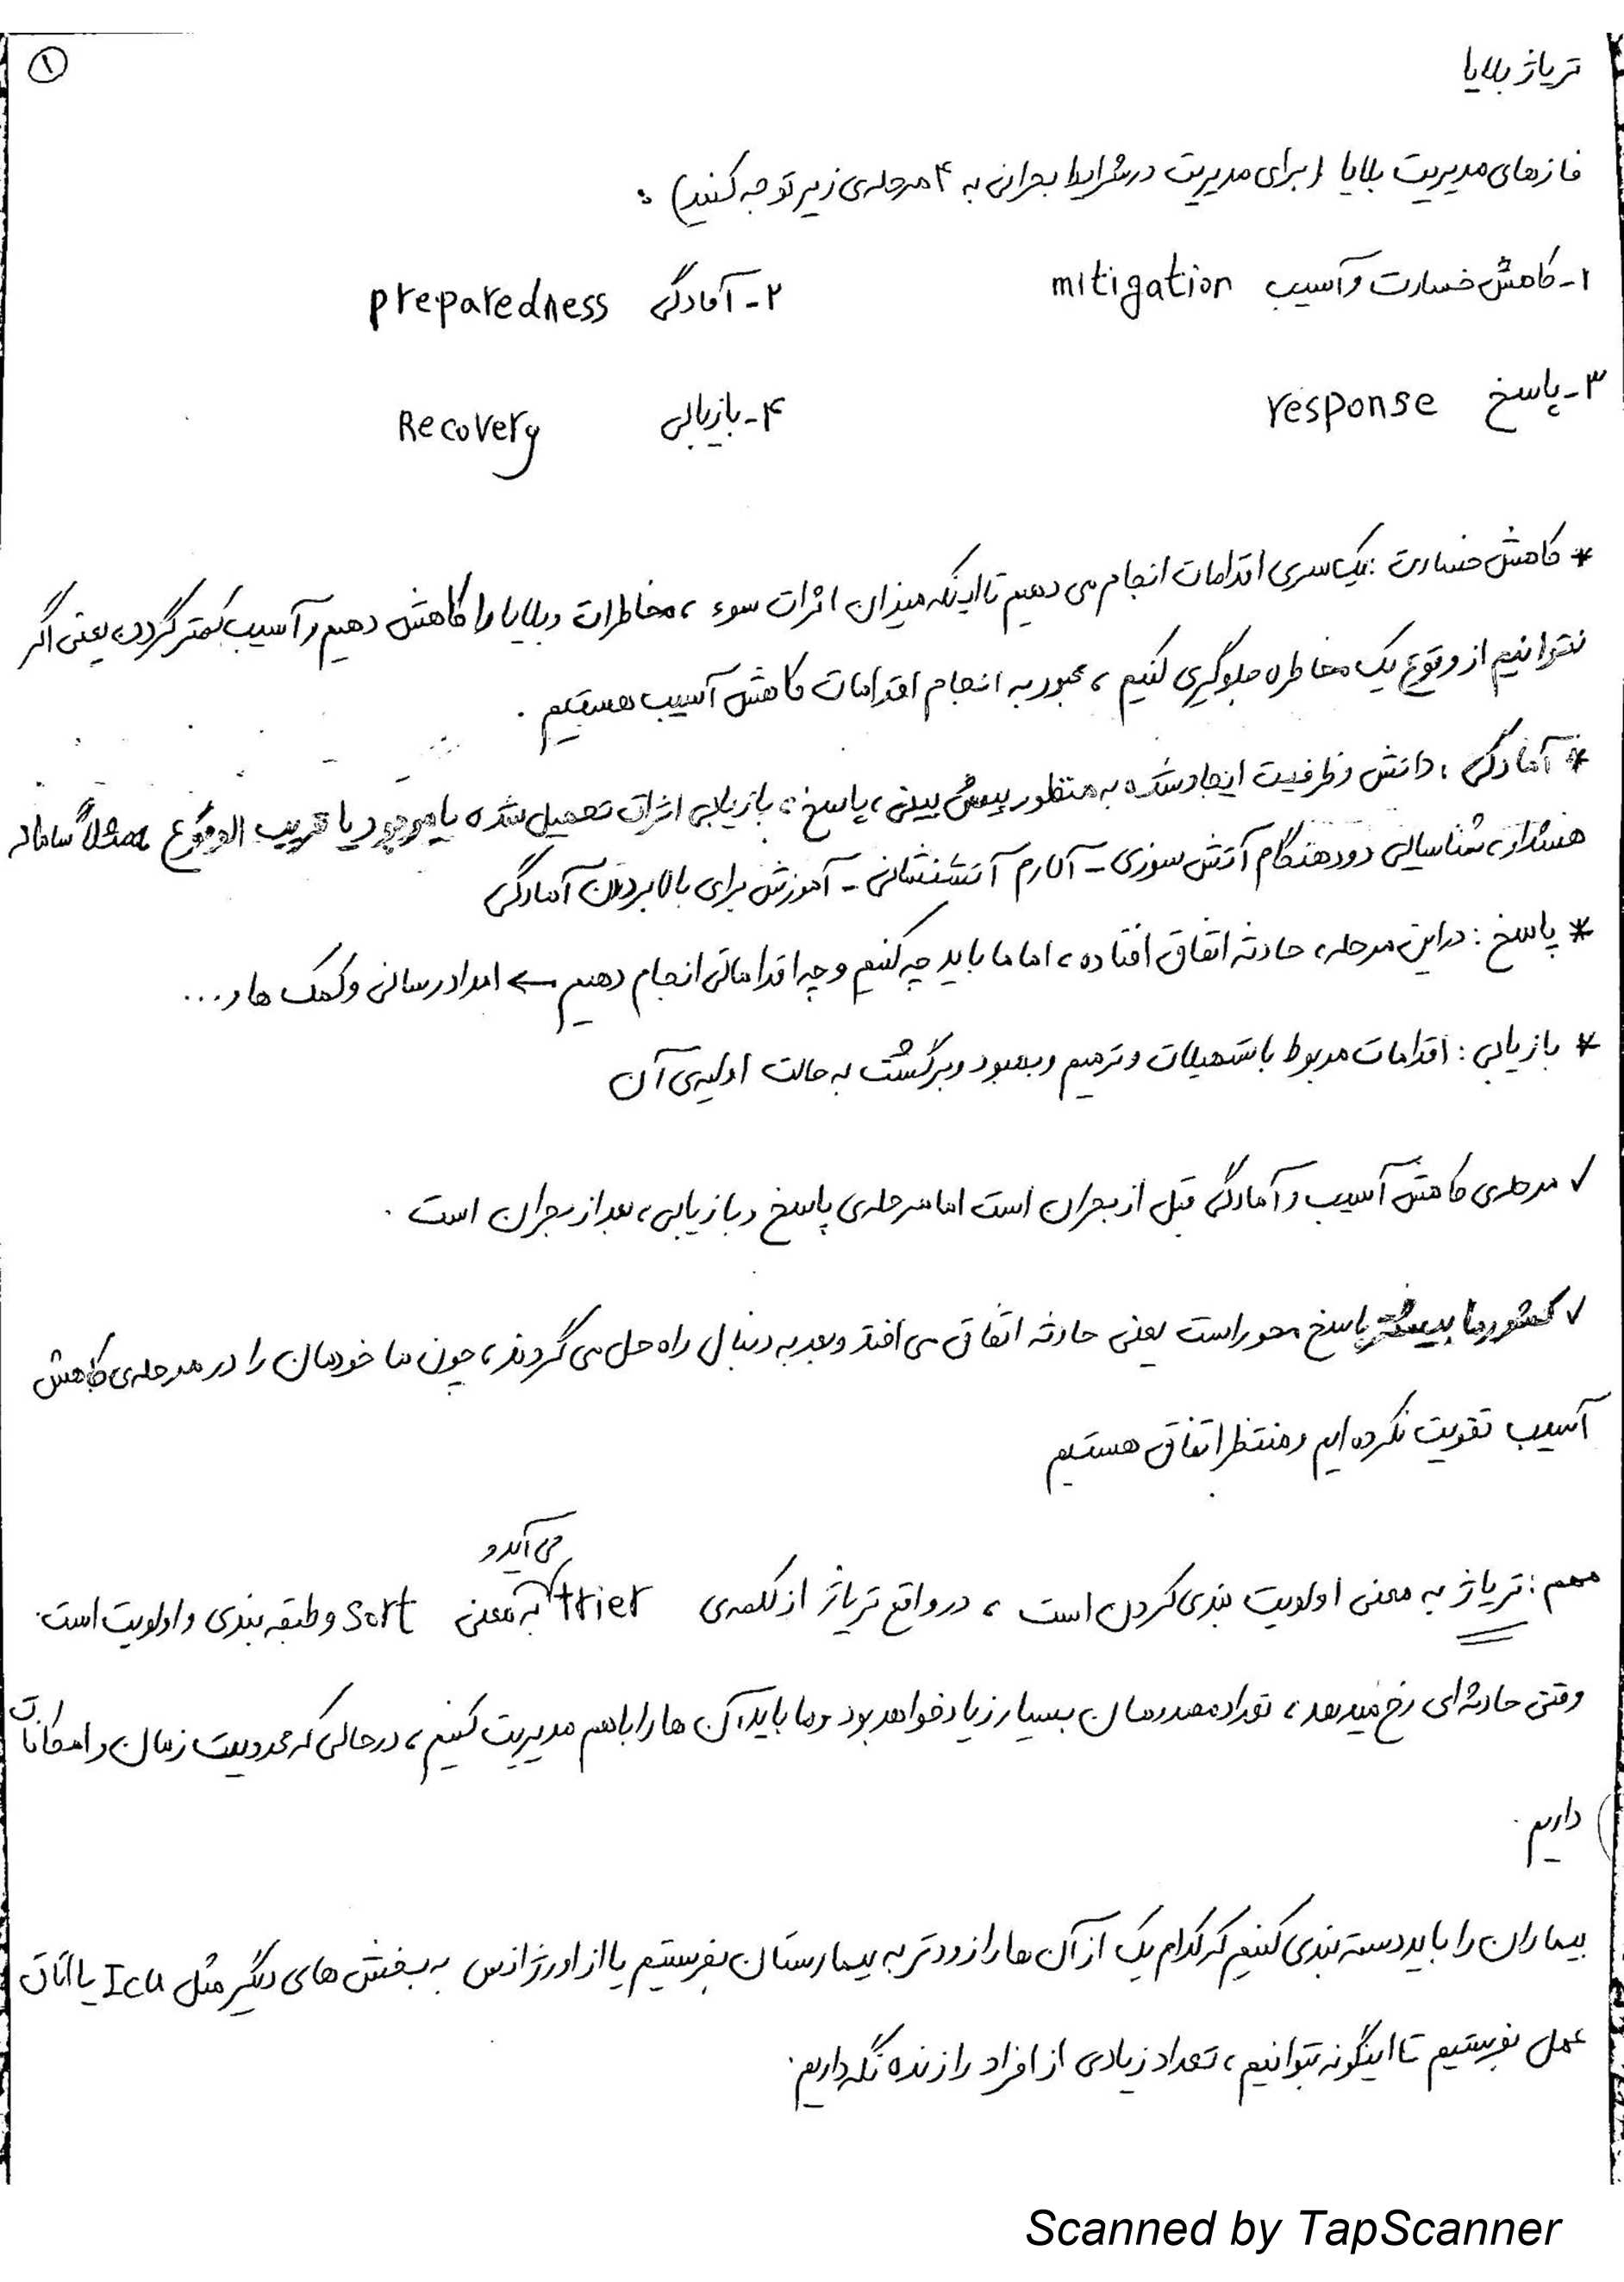 ۱
تریاژ بلایا
فازهای مدیریت بلایا (برای مدیریت در شرایط بحرانی به ۴ مرحله‌ی زیر توجه کنید) :
۱- کاهش خسارت و آسیب mitigation ۲- آمادگی preparedness
۳- پاسخ response ۴- بازیابی Recovery
* کاهش خسارت : یک سری اقدامات انجام می دهیم تا اینکه میزان اثرات سوء ، مخاطرات و بلایا را کاهش دهیم و آسیب کمتر گردد، یعنی اگر
نتوانیم از وقوع یک مخاطره جلوگیری کنیم ، مجبور به انجام اقدامات کاهش آسیب هستیم .
* آمادگی : دانش و ظرفیت ایجاد شده به منظور پیش بینی ، پاسخ ، بازیابی اثرات تحمیل شده یا موجود یا قریب الوقوع مثلاً سامانه
هشدار، شناسایی دود هنگام آتش سوزی - آلارم آتشنشانی - آموزش برای بالا بردن آمادگی
* پاسخ : در این مرحله ، حادثه اتفاق افتاده ، اما ما باید چه کنیم و چه اقداماتی انجام دهیم ← امداد رسانی و کمک ها و ...
* بازیابی : اقدامات مربوط با تسهیلات و ترمیم و بهبود و برگشت به حالت اولیه‌ی آن
✓ مرحله‌ی کاهش آسیب و آمادگی قبل از بحران است اما مرحله‌ی پاسخ و بازیابی ، بعد از بحران است .
✓ کشور ما بیشتر پاسخ محور است یعنی حادثه اتفاق می افتد و بعد به دنبال راه حل می گردند ، چون ما خودمان را در مرحله‌ی کاهش
آسیب تقویت نکرده ایم و منتظر اتفاق هستیم
مهم : تریاژ به معنی اولویت بندی کردن است ، در واقع تریاژ از کلمه‌ی trier می آید و به معنی sort و طبقه بندی و اولویت است.
وقتی حادثه ای رخ میدهد ، تعداد مصدومان بسیار زیاد خواهد بود و ما باید آن ها را با هم مدیریت کنیم ، در حالی که محدودیت زمان و امکانات
داریم .
بیماران را باید دسته بندی کنیم که کدام یک از آن ها را زودتر به بیمارستان بفرستیم یا از اورژانس به بخش های دیگر مثل ICU یا اتاق
عمل بفرستیم تا اینگونه بتوانیم ، تعداد زیادی از افراد را زنده نگه داریم.
Scanned by TapScanner